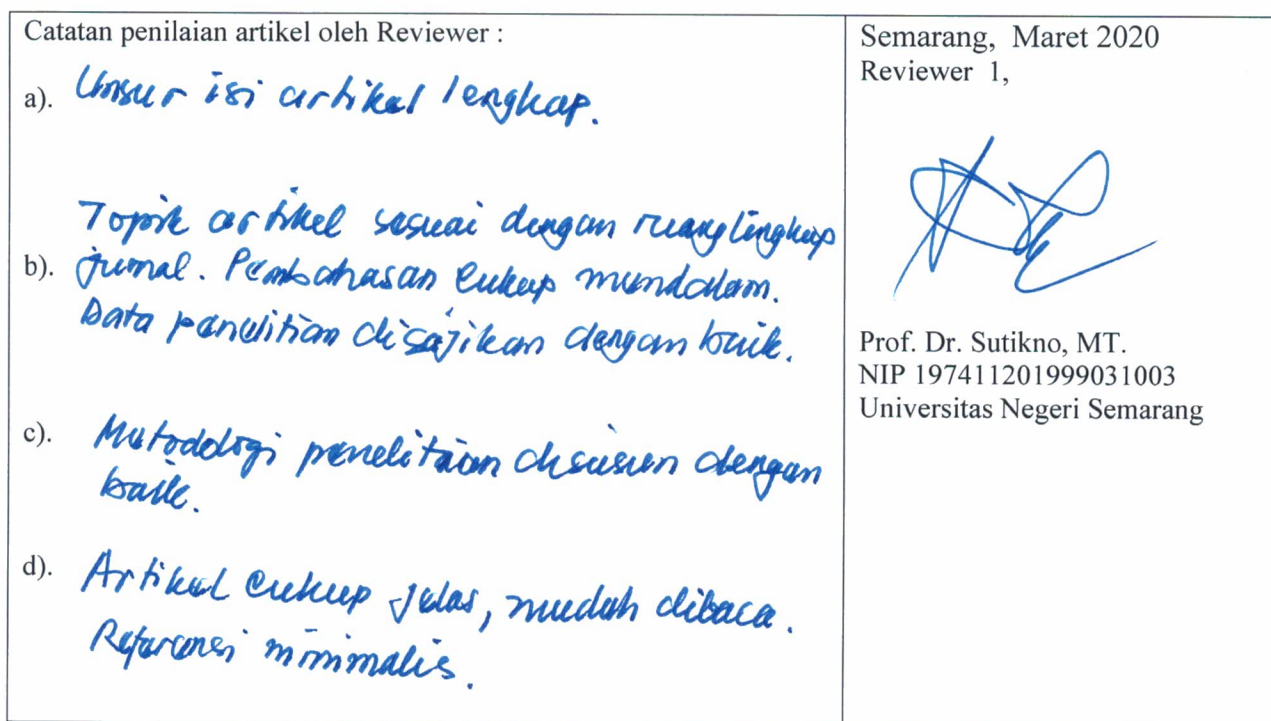 Catatan penilaian artikel oleh Reviewer :
a). Unsur isi artikel lengkap.
Topik artikel sesuai dengan ruang lingkup
b). jurnal. Pembahasan cukup mendalam.
Data penelitian disajikan dengan baik.
c). Metodologi penelitian disusun dengan
baik.
d). Artikel cukup jelas, mudah dibaca.
Referensi minimalis.
Semarang, Maret 2020
Reviewer 1,
Prof. Dr. Sutikno, MT.
NIP 197411201999031003
Universitas Negeri Semarang